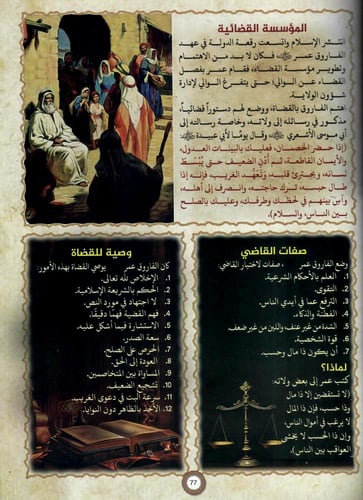 المؤسسة القضائية
انتشر الإسلام واتسعت رقعة الدولة في عهد
الفاروق عمر ﷺ، فكان لا بد من الاهتمام
وتطوير مؤسسة القضاء، فقام عمر بفصل
القضاء عن الوالي؛ حتى يتفرغ الوالي لإدارة
شؤون الولاية.
اهتم الفاروق بالقضاة، ووضع لهم دستوراً قضائياً،
مذكور في رسائله إلى ولاته، وخاصة رسالته إلى
أبي موسى الأشعري، وقال يوماً لأبي عبيدة
(إذا حضر الخصمان، فعليك بالبينات العدول،
والأيمان القاطعة، ثم أدن الضعيف حتى يُبسَط
لسانه، ويجترئ قلبه، وتعهَّد الغريب، فإنه إذا
طال حبسه ترك حاجته، وانصرف إلى أهله،
وآسِ بينهم في لحظك وطرفك، وعليك بالصلح
بين الناس، والسلام).
صفات القاضي
وضع الفاروق عمر، صفات لاختيار القاضي:
1. العلم بالأحكام الشرعية.
2. التقوى.
3. الترفع عما في أيدي الناس.
4. الفطنة والذكاء.
5. الشدة من غير عنف، واللين من غير ضعف.
6. قوة الشخصية.
7. أن يكون ذا مال وحسب.
لماذا؟
كتب عمر إلى بعض ولاته:
(لا تستقضين إلا ذا مال
وذا حسب، فإن ذا المال
لا يرغب في أموال الناس،
وإن ذا الحسب لا يخشى
العواقب بين الناس).
وصية للقضاة
كان الفاروق عمر يوصي القضاة بهذه الأمور:
1. الإخلاص لله تعالى.
2. الحكم بالشريعة الإسلامية.
3. لا اجتهاد في مورد النص.
4. فهم القضية فهماً دقيقاً.
5. الاستشارة فيما أشكل عليه.
6. سعة الصدر.
7. الحرص على الصلح.
8. العودة إلى الحق.
9. المساواة بين المتخاصمين.
10. تشجيع الضعيف.
11. سرعة البت في دعوى الغريب.
12. الأخذ بالظاهر دون النوايا.
77